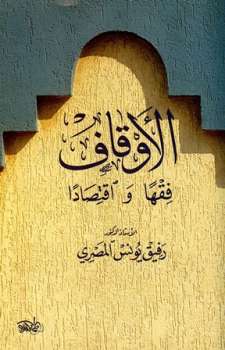 الأوقاف
فِقْهًا وَ اقتِصَادًا
الأستاذ الدكتور
رفيق يونس المصري